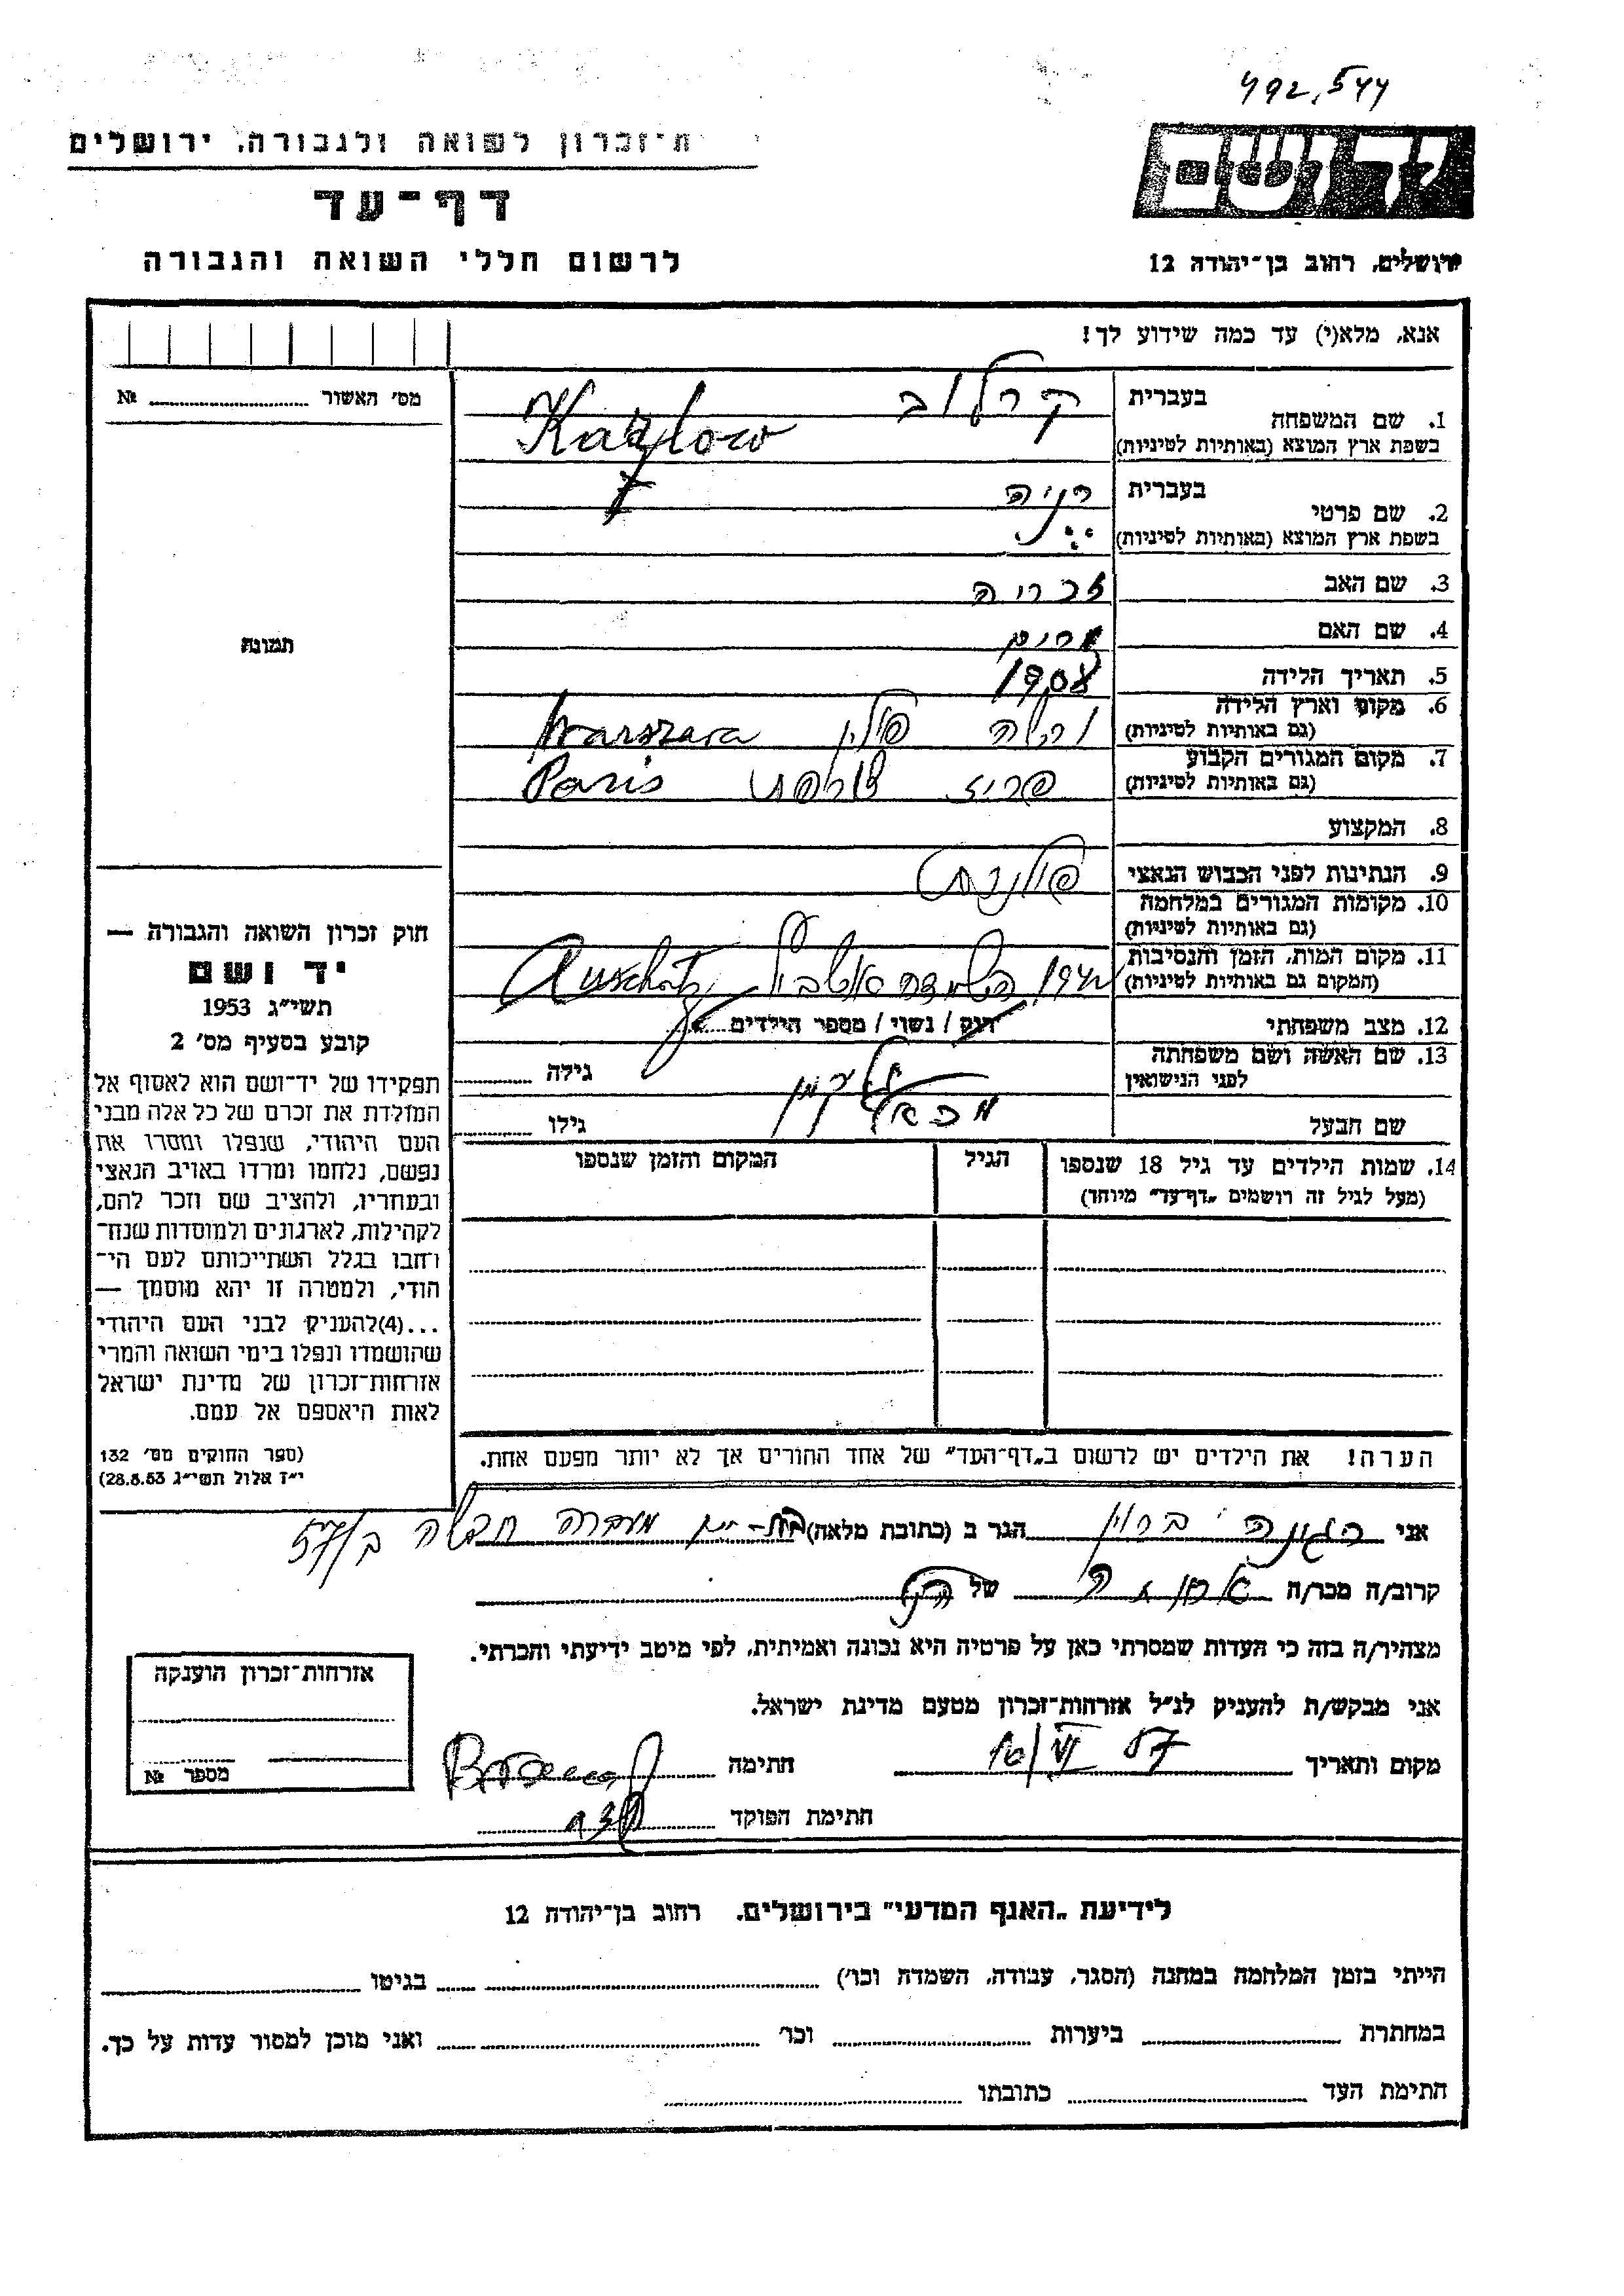 492,544
ת־זכרון לשואה ולגבורה. ירושלים
יד ושם
דף־עד
לרשום חללי השואה והגבורה
ירושלים, רחוב בן־יהודה 12
אנא, מלא(י) עד כמה שידוע לך!
מס׳ האשור № 
1. שם המשפחה בעברית קרלוב
בשפת ארץ המוצא (באותיות לטיניות) Karlow
2. שם פרטי בעברית רניה
בשפת ארץ המוצא (באותיות לטיניות)
3. שם האב זכריה
4. שם האם מרים
5. תאריך הלידה 1908
6. מקום וארץ הלידה (גם באותיות לטיניות) ורשה פולין Warszawa
7. מקום המגורים הקבוע (גם באותיות לטיניות) פריז צרפת Paris
8. המקצוע
9. הנתינות לפני הכבוש הנאצי פולנית
10. מקומות המגורים במלחמה (גם באותיות לטיניות)
11. מקום המות, הזמן והנסיבות (המקום גם באותיות לטיניות) 1942
12. מצב משפחתי רוק / נשוי / מספר הילדים
13. שם האשה ושם משפחתה לפני הנישואין גילה
שם הבעל מכאל גילו
14. שמות הילדים עד גיל 18 שנספו (מעל לגיל זה רושמים „דף־עד״ מיוחד) הגיל המקום והזמן שנספו
הערה! את הילדים יש לרשום ב„דף־העד״ של אחד ההורים אך לא יותר מפעם אחת.
תמונה
חוק זכרון השואה והגבורה —
יד ושם
תשי״ג 1953
קובע בסעיף מס׳ 2
תפקידו של יד־ושם הוא לאסוף אל
המולדת את זכרם של כל אלה מבני
העם היהודי, שנפלו ומסרו את
נפשם, נלחמו ומרדו באויב הנאצי
ובעוזריו, ולהציב שם וזכר להם,
לקהילות, לארגונים ולמוסדות שנח־
רחבו בגלל השתייכותם לעם הי־
הודי, ולמטרה זו יהא מוסמך —
...(4)להעניק לבני העם היהודי
שהושמדו ונפלו בימי השואה והמרי
אזרחות־זכרון של מדינת ישראל
לאות היאספם אל עמם.
(ספר החוקים מס׳ 132
י״ז אלול תשי״ג 28.8.53)
אני הגר ב (כתובת מלאה) בת-ים מעברה
קרוב/ה מכר/ה של
מצהיר/ה בזה כי העדות שמסרתי כאן על פרטיה היא נכונה ואמיתית, לפי מיטב ידיעתי והכרתי.
אני מבקש/ת להעניק לנ״ל אזרחות־זכרון מטעם מדינת ישראל.
מקום ותאריך 10/VI 57 חתימה
חתימת הפוקד
אזרחות־זכרון הוענקה
מספר №
לידיעת „האגף המדעי״ בירושלים. רחוב בן־יהודה 12
הייתי בזמן המלחמה במחנה (הסגר, עבודה, השמדה וכו׳) בגיטו
במחתרת ביערות וכו׳ ואני מוכן למסור עדות על כך.
חתימת העד כתובתו